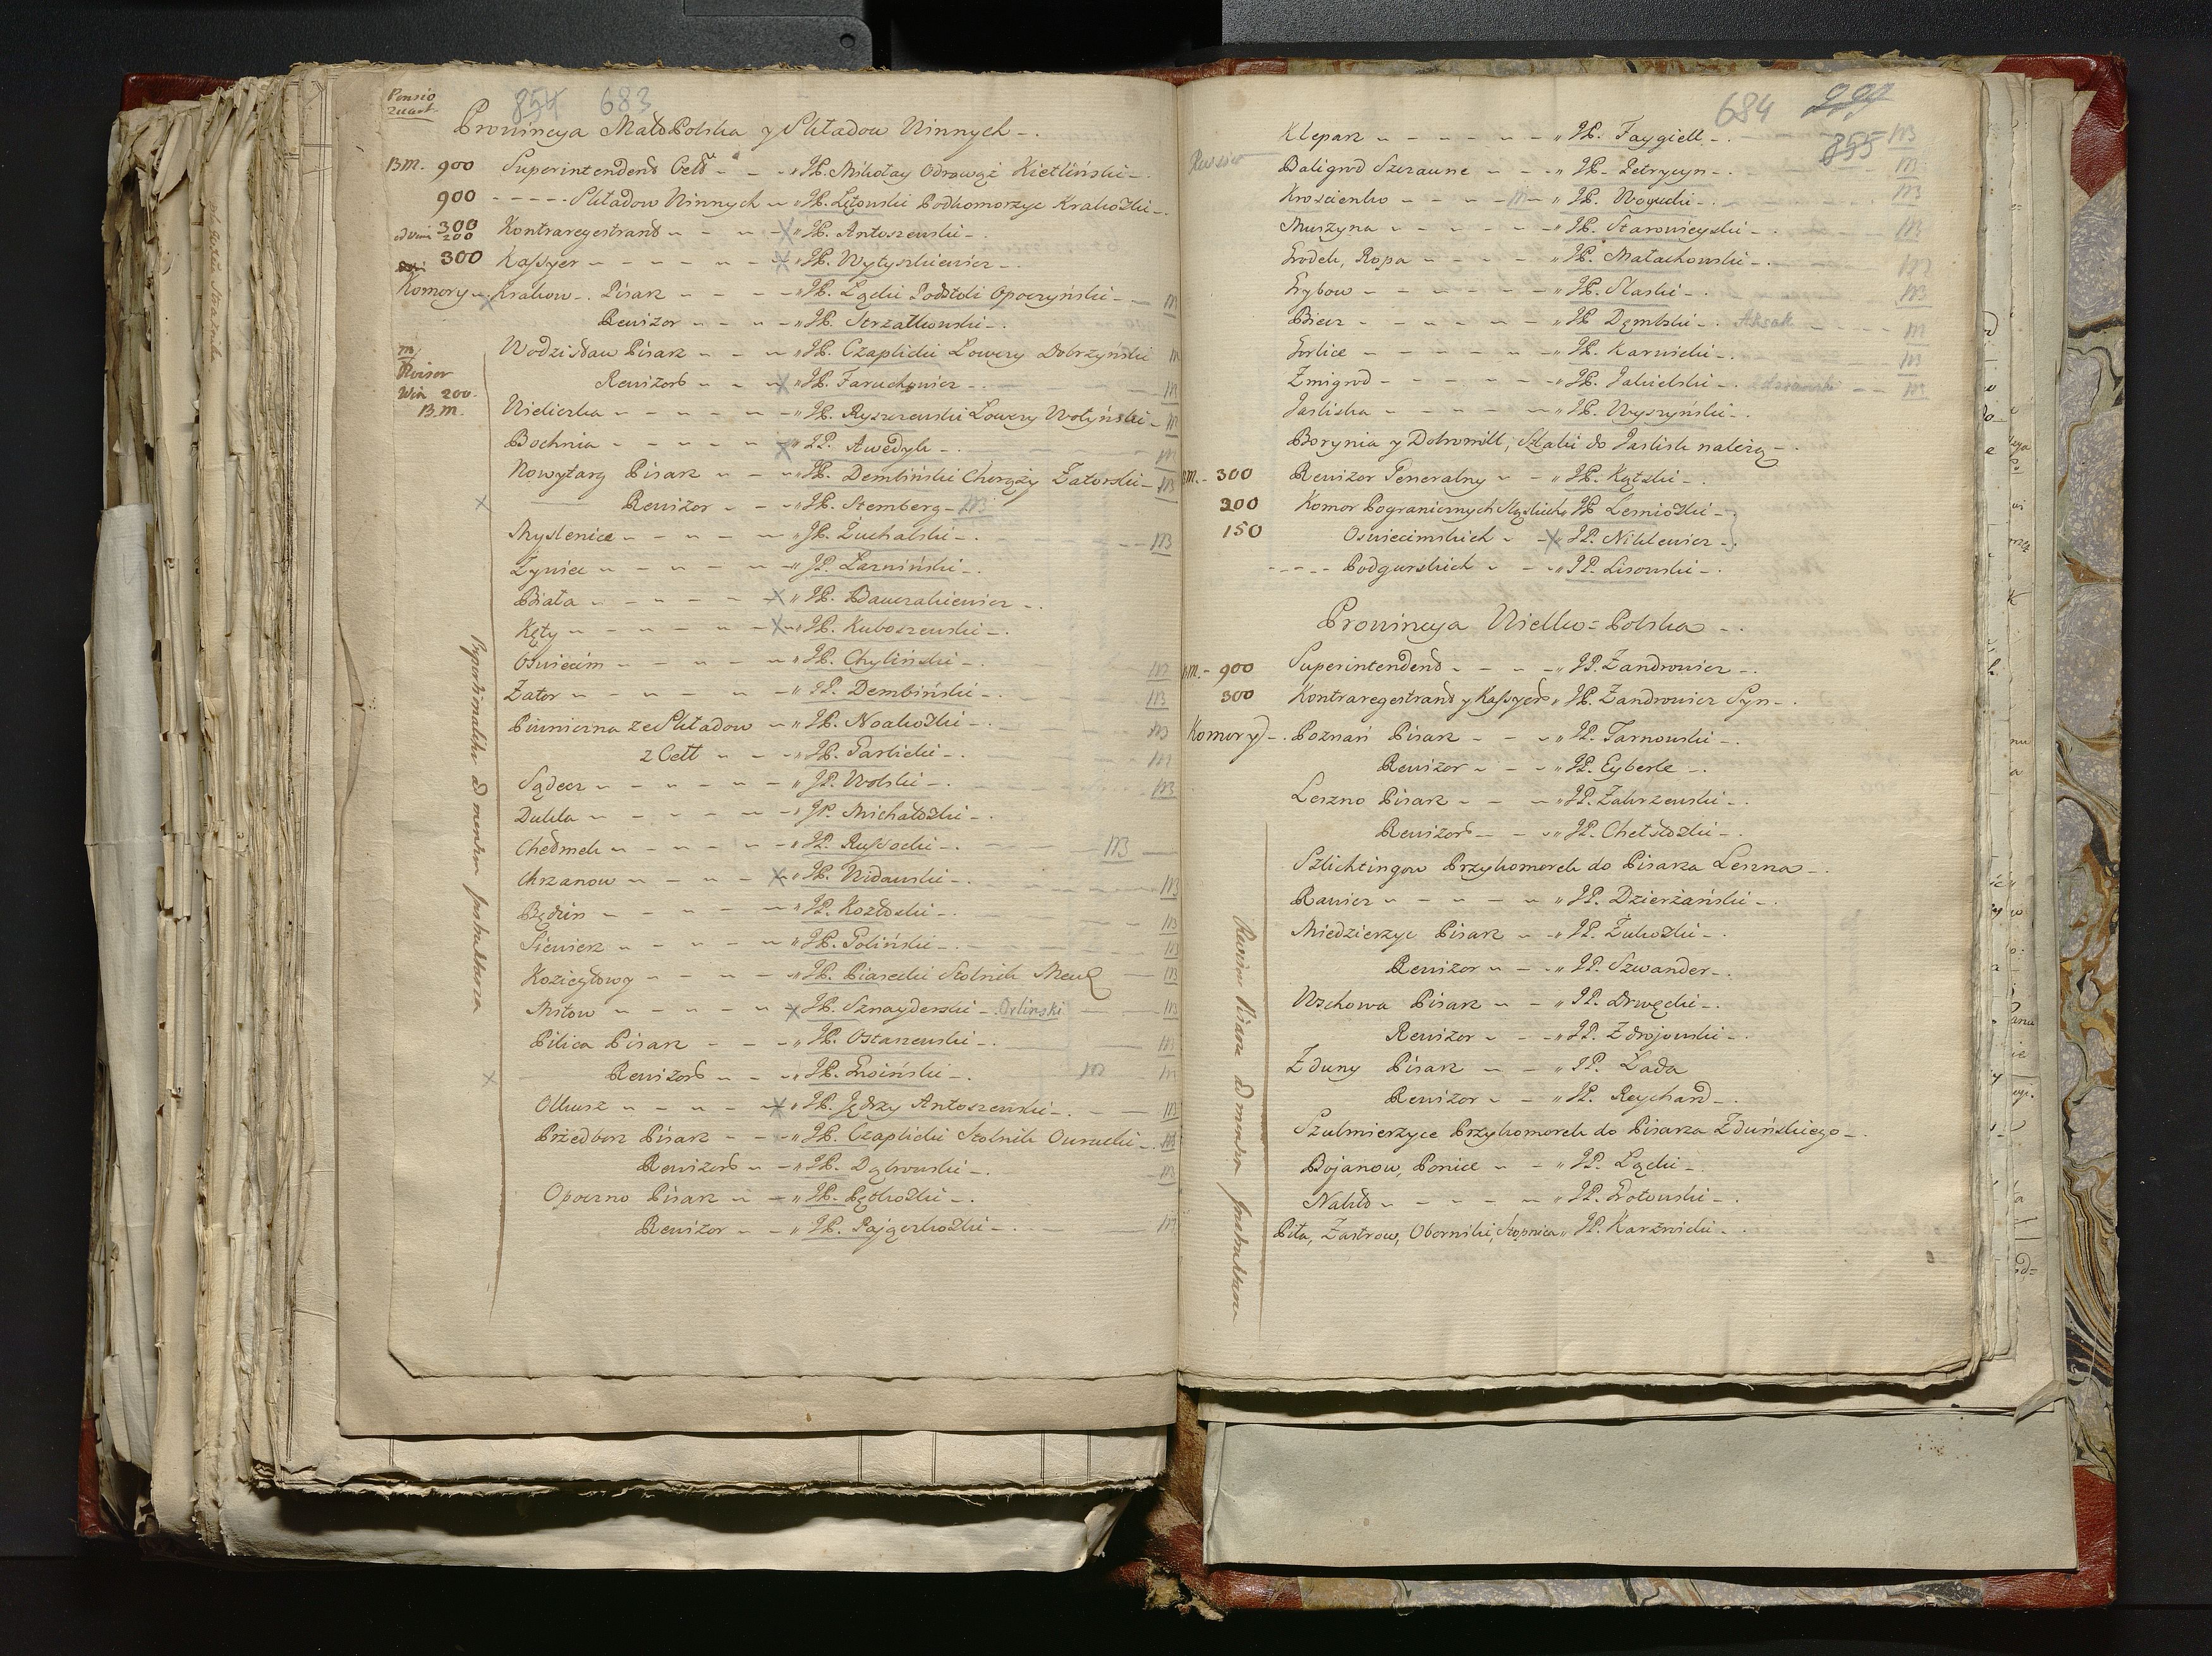 Pensio
854 683
Prowincya MałoPolska y Składow Winnych
B.M. 900 Superintendend Celł " JP. Mikołay Odrowąż Kietliński
900 Składow Winnych " JP. Łętowski Podkomorzyc Krakoski
300 200 Kontraregestrand " JP. Antoszewski
300 Kassyer " JP. Wytyszkiewicz
Komory Krakow Pisarz " JP. Łącki Podstoli Opoczyński M
Rewizor " JP. Strzałkowski
M Wodzisław Pisarz " JP. Czaplicki Łowczy Dobrzyński M
Rewizor
Win 200. Rewizord " JP. Faruchowicz M
B.M. Wieliczka " JP. Ryszczewski Łowczy Wołyński M
Bochnia " JP. Awedyk M
Nowytarg Pisarz " JP. Dembiński Chorąży Zatorski M
Rewizor " JP. Stemberg M
Myslenice " JP. Żuchalski M
Żywiec " JP. Łarniński
Biała " JP. Bawczakiewicz
Kęty " JP. Kuboszewski
Oswiecim " JP. Chyliński M
Zator " JP. Dembiński M
Piwniczna ze Składow " JP. Noakoski M
z Cełł " JP. Garlicki M
Sądecz " JP. Wolski M
Dukla " JP. Michałoski
Chełmek " JP. Russocki M
Chrzanow " JP. Widawski M
Będzin " JP. Kozłoski M
Siewierz " JP. Goliński M
Koziegłowy " JP. Piasecki Stolnik M
Miłow " JP. Sznayderski Orlinski M
Pilica Pisarz " JP. Ostaszewski M
Rewizord " JP. Groiński M
Olkusz " JP. Jędrzy Antoszewski M
Przedborz Pisarz " JP. Czaplicki Stolnik Owrucki M
Rewizord " JP. Dąbrowski M
Opoczno Pisarz " JP. Pętkoski
Rewizor " JP. Pajączkoski M
684
855
Kleparz " JP. Faygiell M
Baligrod Szczawne " JP. Petrycyn M
Kroscienko " JP. Wogucki M
Muszyna " JP. Starowieyski M
Grodek, Ropa " JP. Małachowski M
Grybow " JP. Slaski M
Biecz " JP. Dęmbski M
Gorlice " JP. Karwicki M
Zmigrod " JP. Jabielski M
Jasliska " JP. Wyszyński
Borynia y Dobromill, Szlaki do Jaslisk należą
M. 300 Rewizor Generalny " JP. Kątski
300 Komor Pogranicznych Sląskich " JP. Lemioski
150 Oswiecimskich " JP. Niklewicz
Podgurskich " JP. Lisowski
Prowincya Wielko=Polska
M. 900 Superintendend " JP. Zandrowicz
300 Kontraregestrand y Kassyer " JP. Zandrowicz Syn
Komory Poznań Pisarz " JP. Tarnowski
Rewizor " JP. Eyberle
Leszno Pisarz " JP. Zakrzewski
Rewizord " JP. Chełstoski
Szlichtingow Przykomorek do Pisarza Leszna
Rawicz " JP. Dzierżański
Miedzierzyc Pisarz " JP. Żukoski
Rewizor " JP. Szwander
Wschowa Pisarz " JP. Drwęcki
Rewizor " JP. Zdrojowski
Zduny Pisarz " JP. Łada
Rewizor " JP. Reychard
Szulmierzyce Przykomorek do Pisarza Zduńskiego
Bojanow, Ponice " JP. Łącki
Nakło " JP. Grotowski
Piła, Zastrow, Oborniki, Stopnica " JP. Karznicki